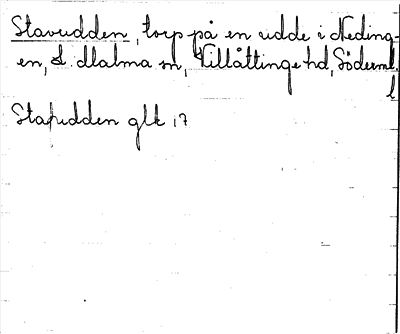 Stavudden, torp på en udde i Neding-
en, St Malma sn, Villåttinge hd, Söderml.
Stafudden glk